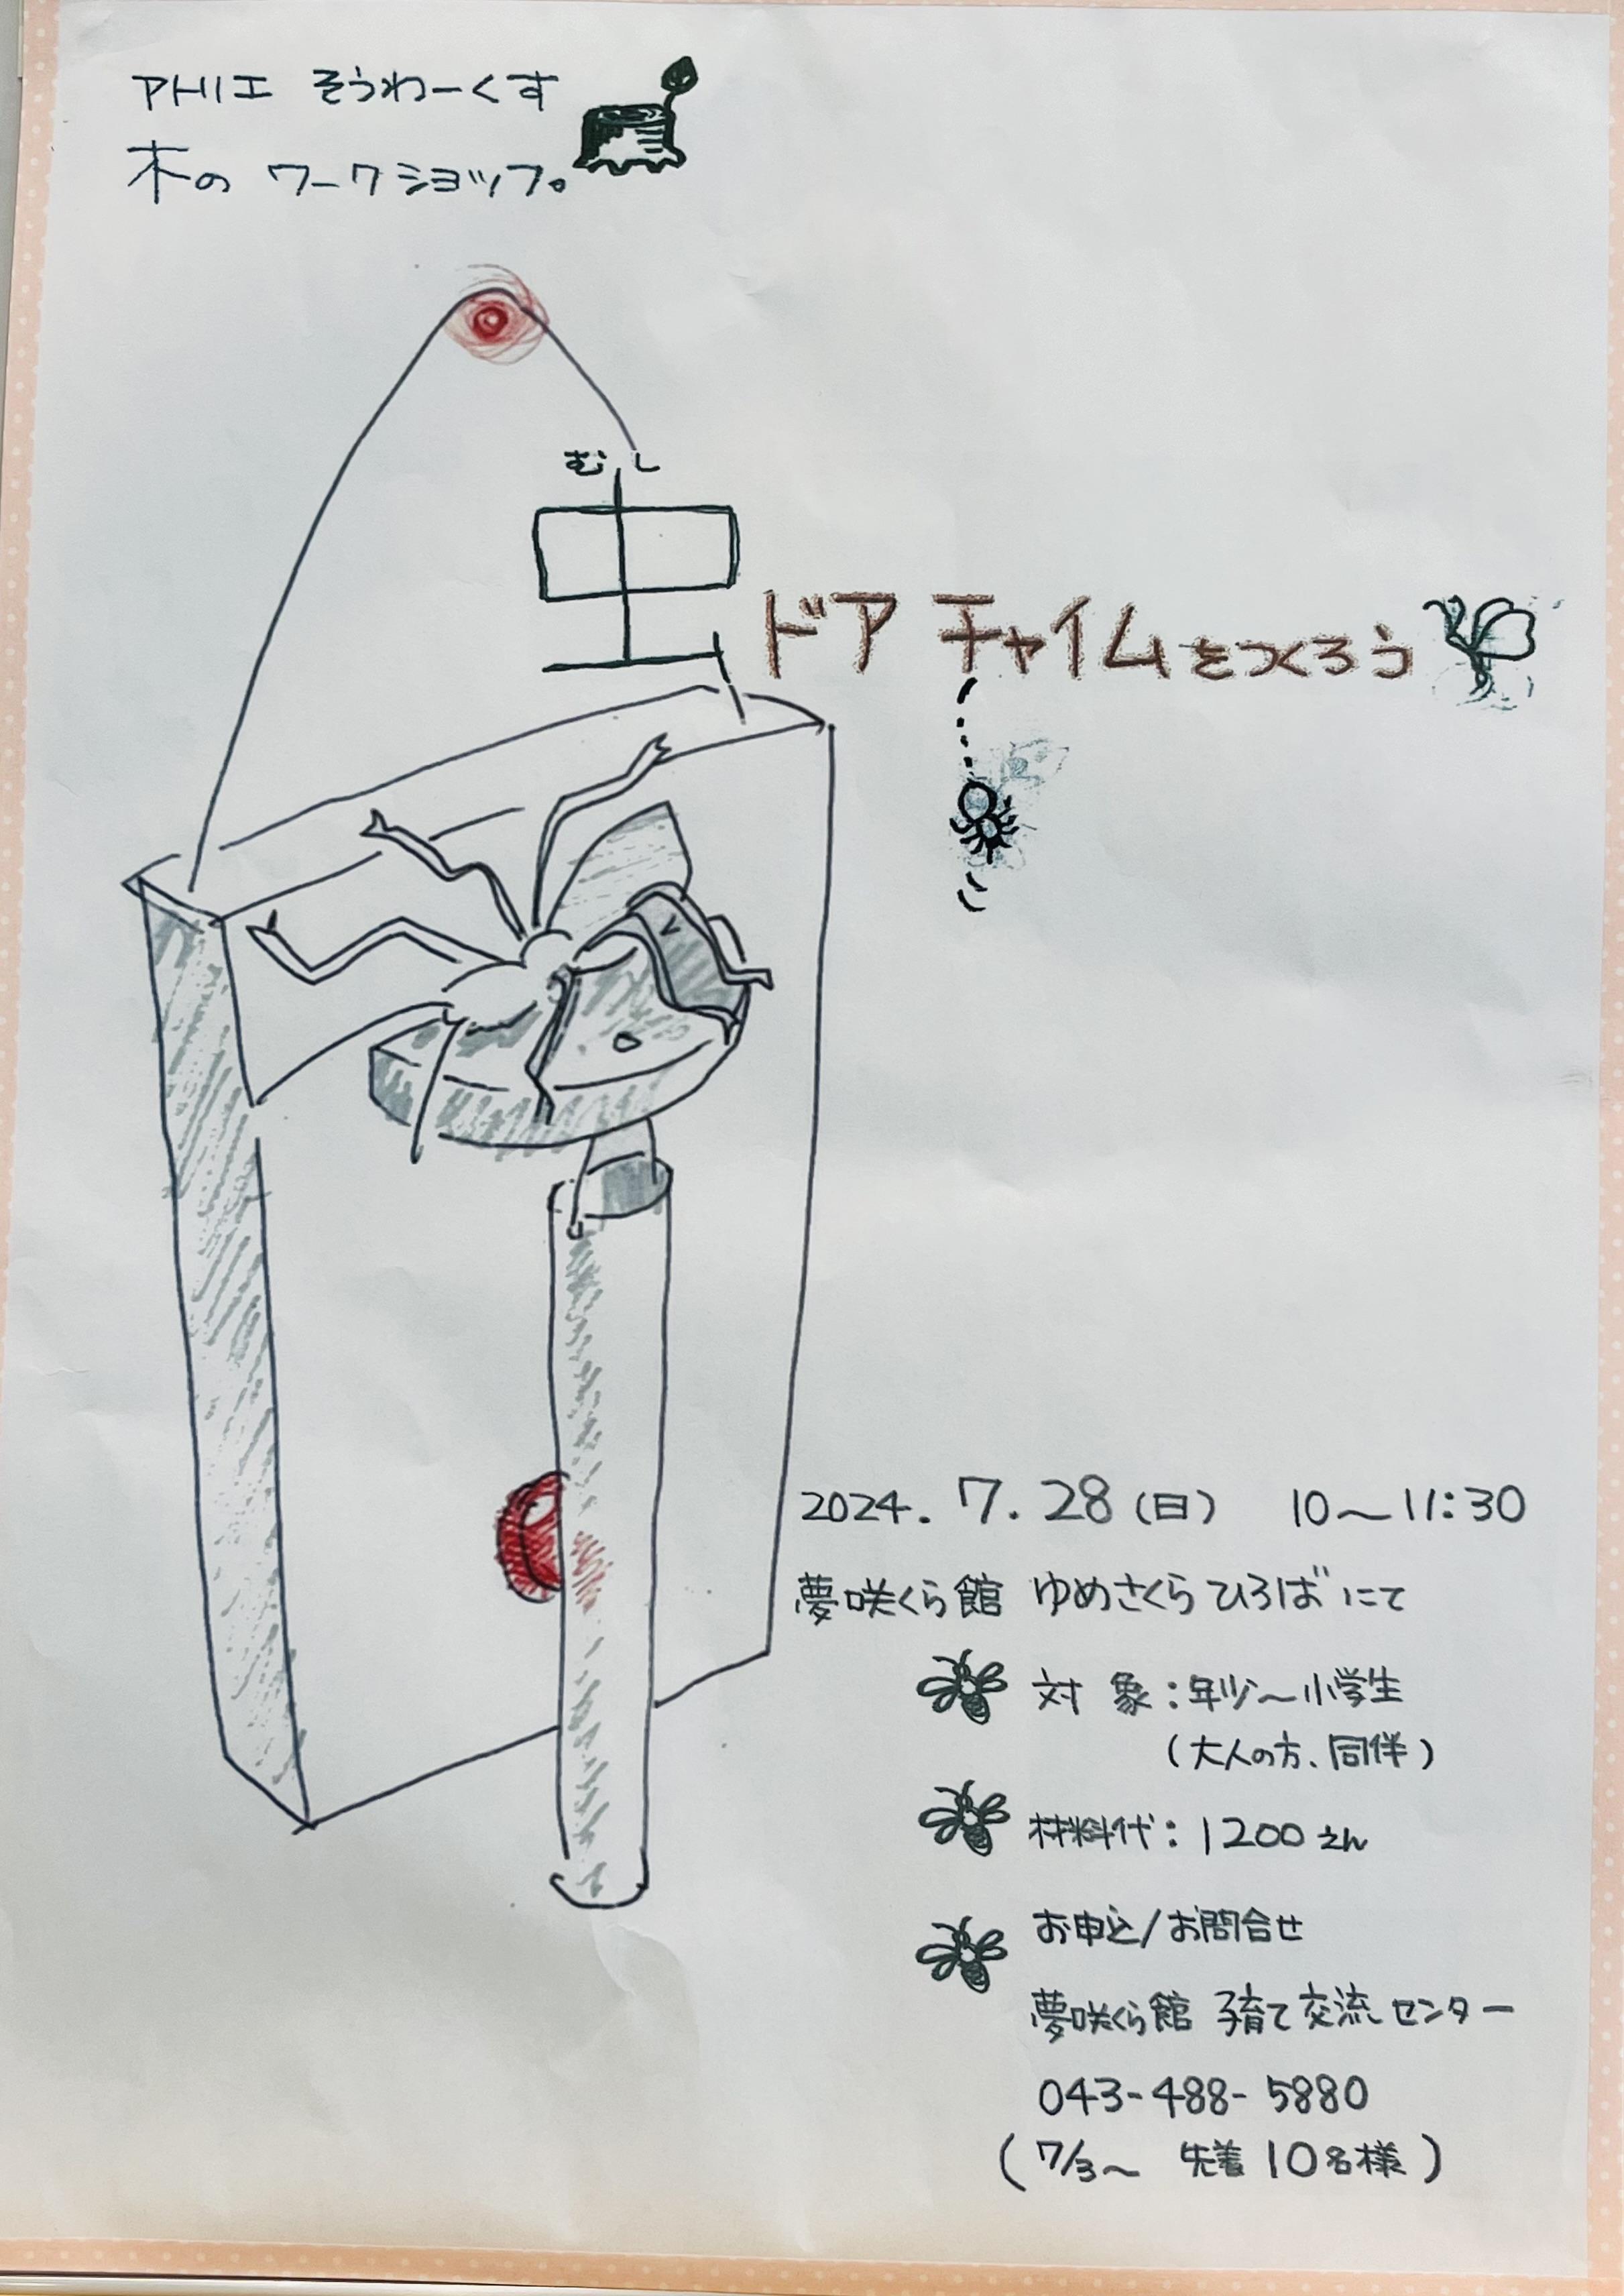 アトリエ そうわーくす
木の ワークショップ。
むし
虫ドアチャイムをつくろう
2024. 7. 28 (日) 10〜11:30
夢咲くら館 ゆめさくらひろばにて
対象：年少〜小学生
(大人の方、同伴)
材料代：1200えん
お申込/お問合せ
夢咲くら館 子育て交流センター
043-488-5880
(7/3〜 先着10名様)